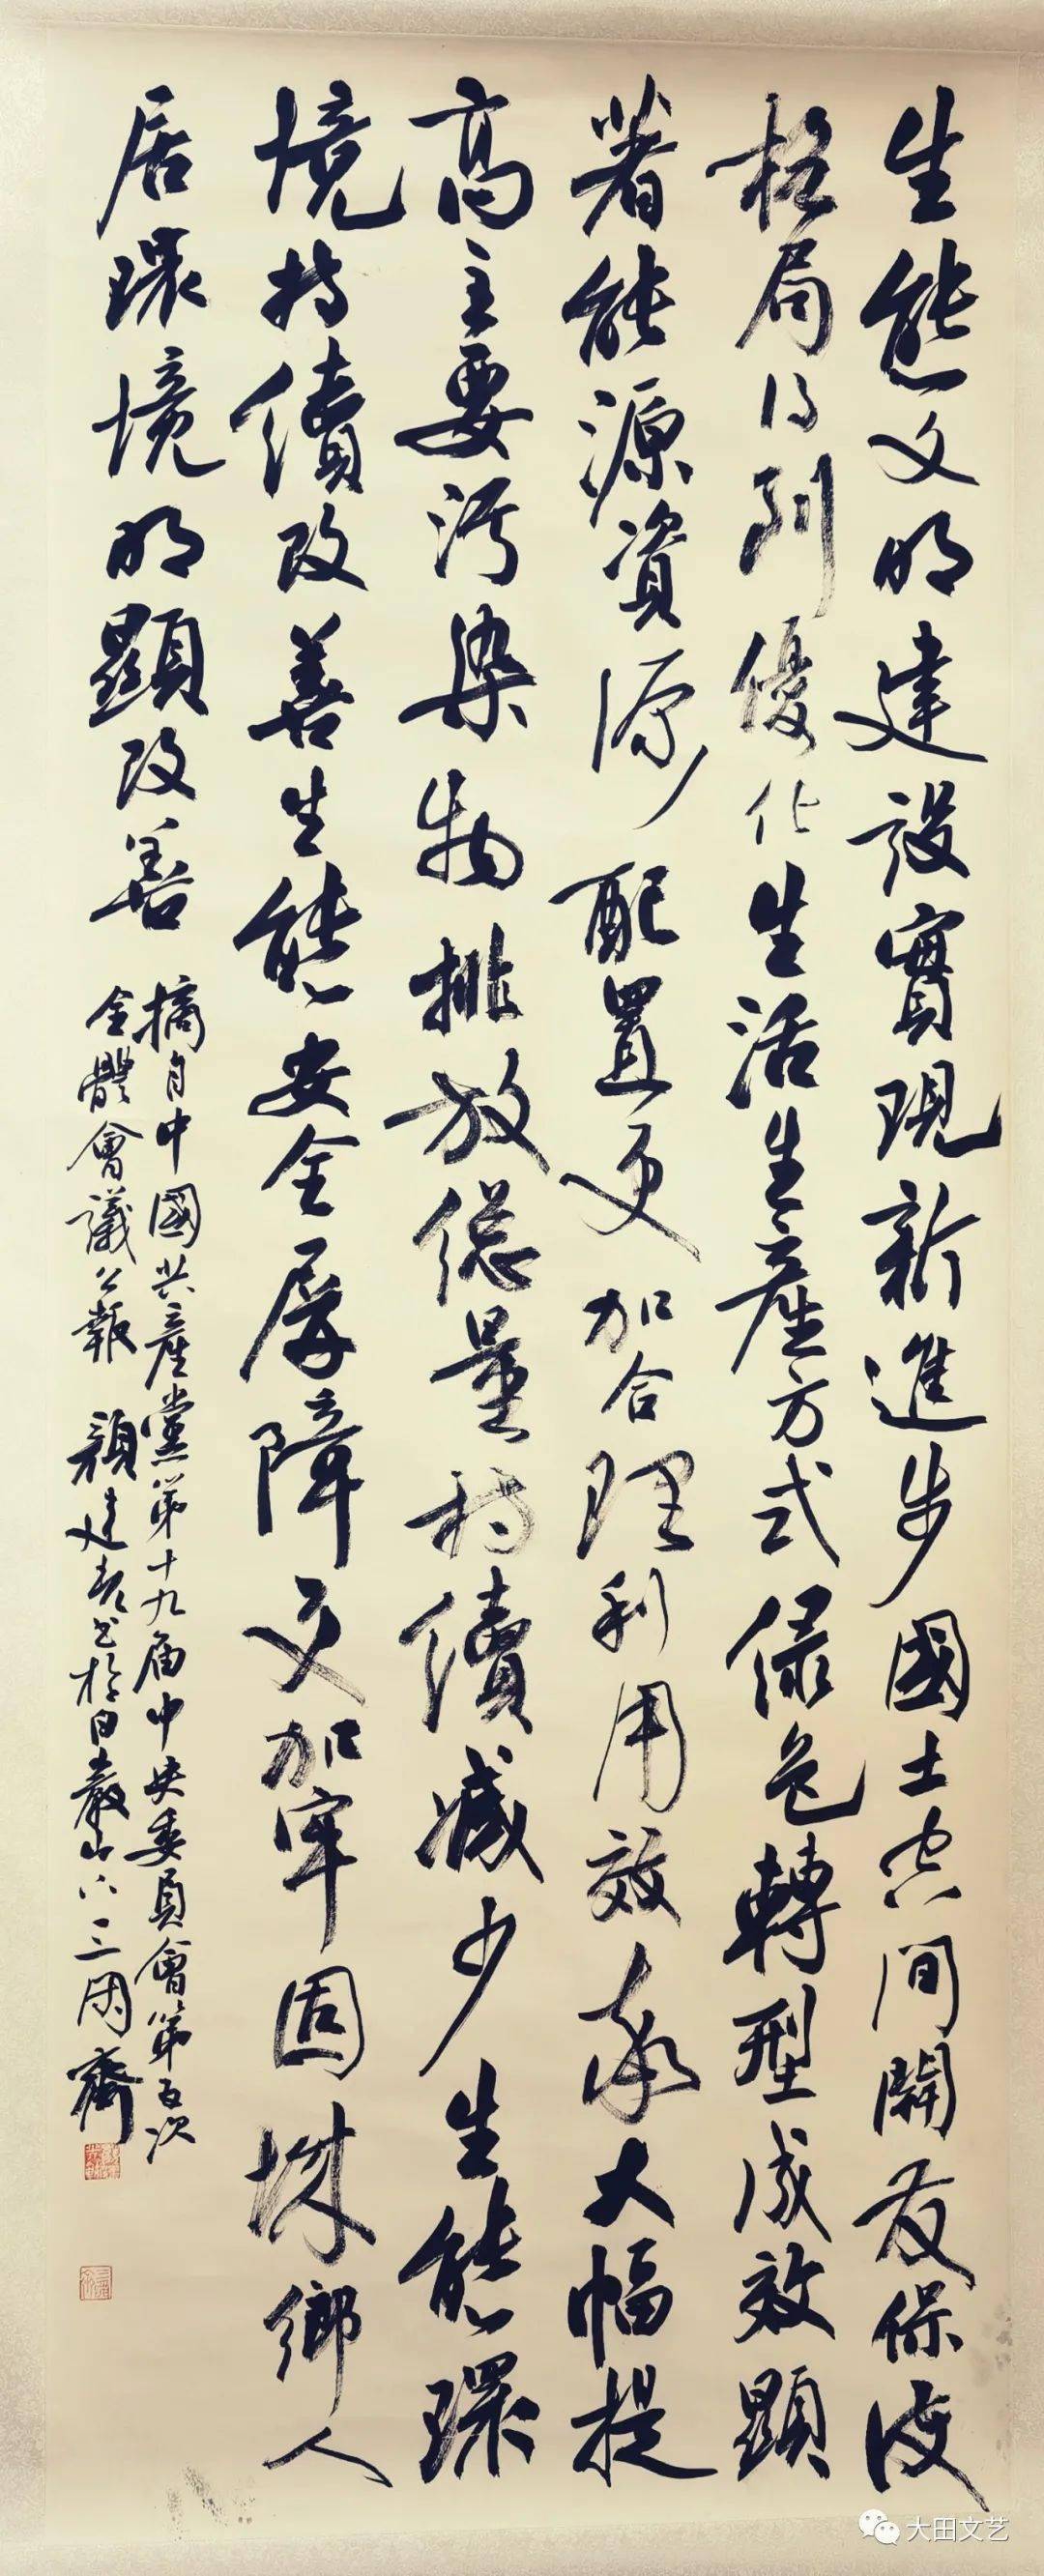 生態文明建設實現新進步國土空間開發保護
格局得到優化生活生產方式綠色轉型成效顯
著能源資源配置更加合理利用效率大幅提
高主要污染物排放總量持續減少生態環
境持續改善生態安全屏障更加牢固城鄉人
居環境明顯改善
摘自中國共產黨第十九届中央委員會第五次
全體會議公報 顏建 書於白巖山六三閑齋
大田文艺